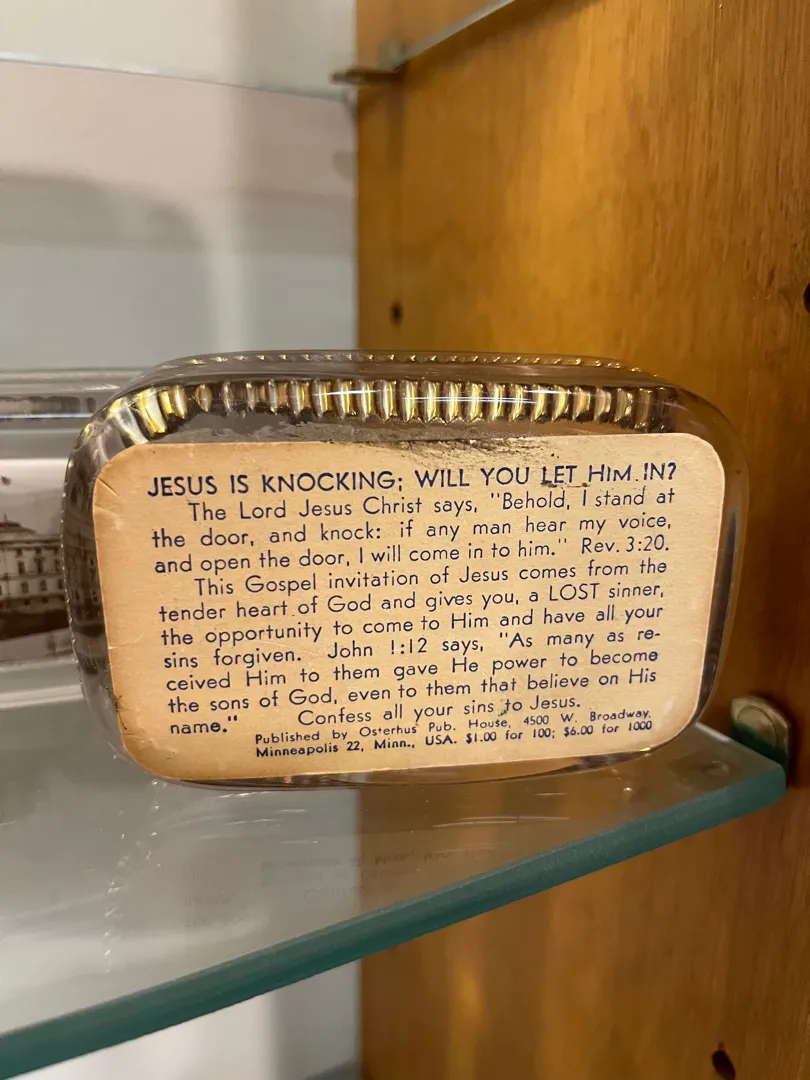 JESUS IS KNOCKING; WILL YOU LET HIM IN?
The Lord Jesus Christ says, "Behold, I stand at
the door, and knock: if any man hear my voice,
and open the door, I will come in to him." Rev. 3:20.
This Gospel invitation of Jesus comes from the
tender heart of God and gives you, a LOST sinner,
the opportunity to come to Him and have all your
sins forgiven. John 1:12 says, "As many as re-
ceived Him to them gave He power to become
the sons of God, even to them that believe on His
name." Confess all your sins to Jesus.
Published by Osterhus Pub. House, 4500 W. Broadway,
Minneapolis 22, Minn., USA. $1.00 for 100; $6.00 for 1000